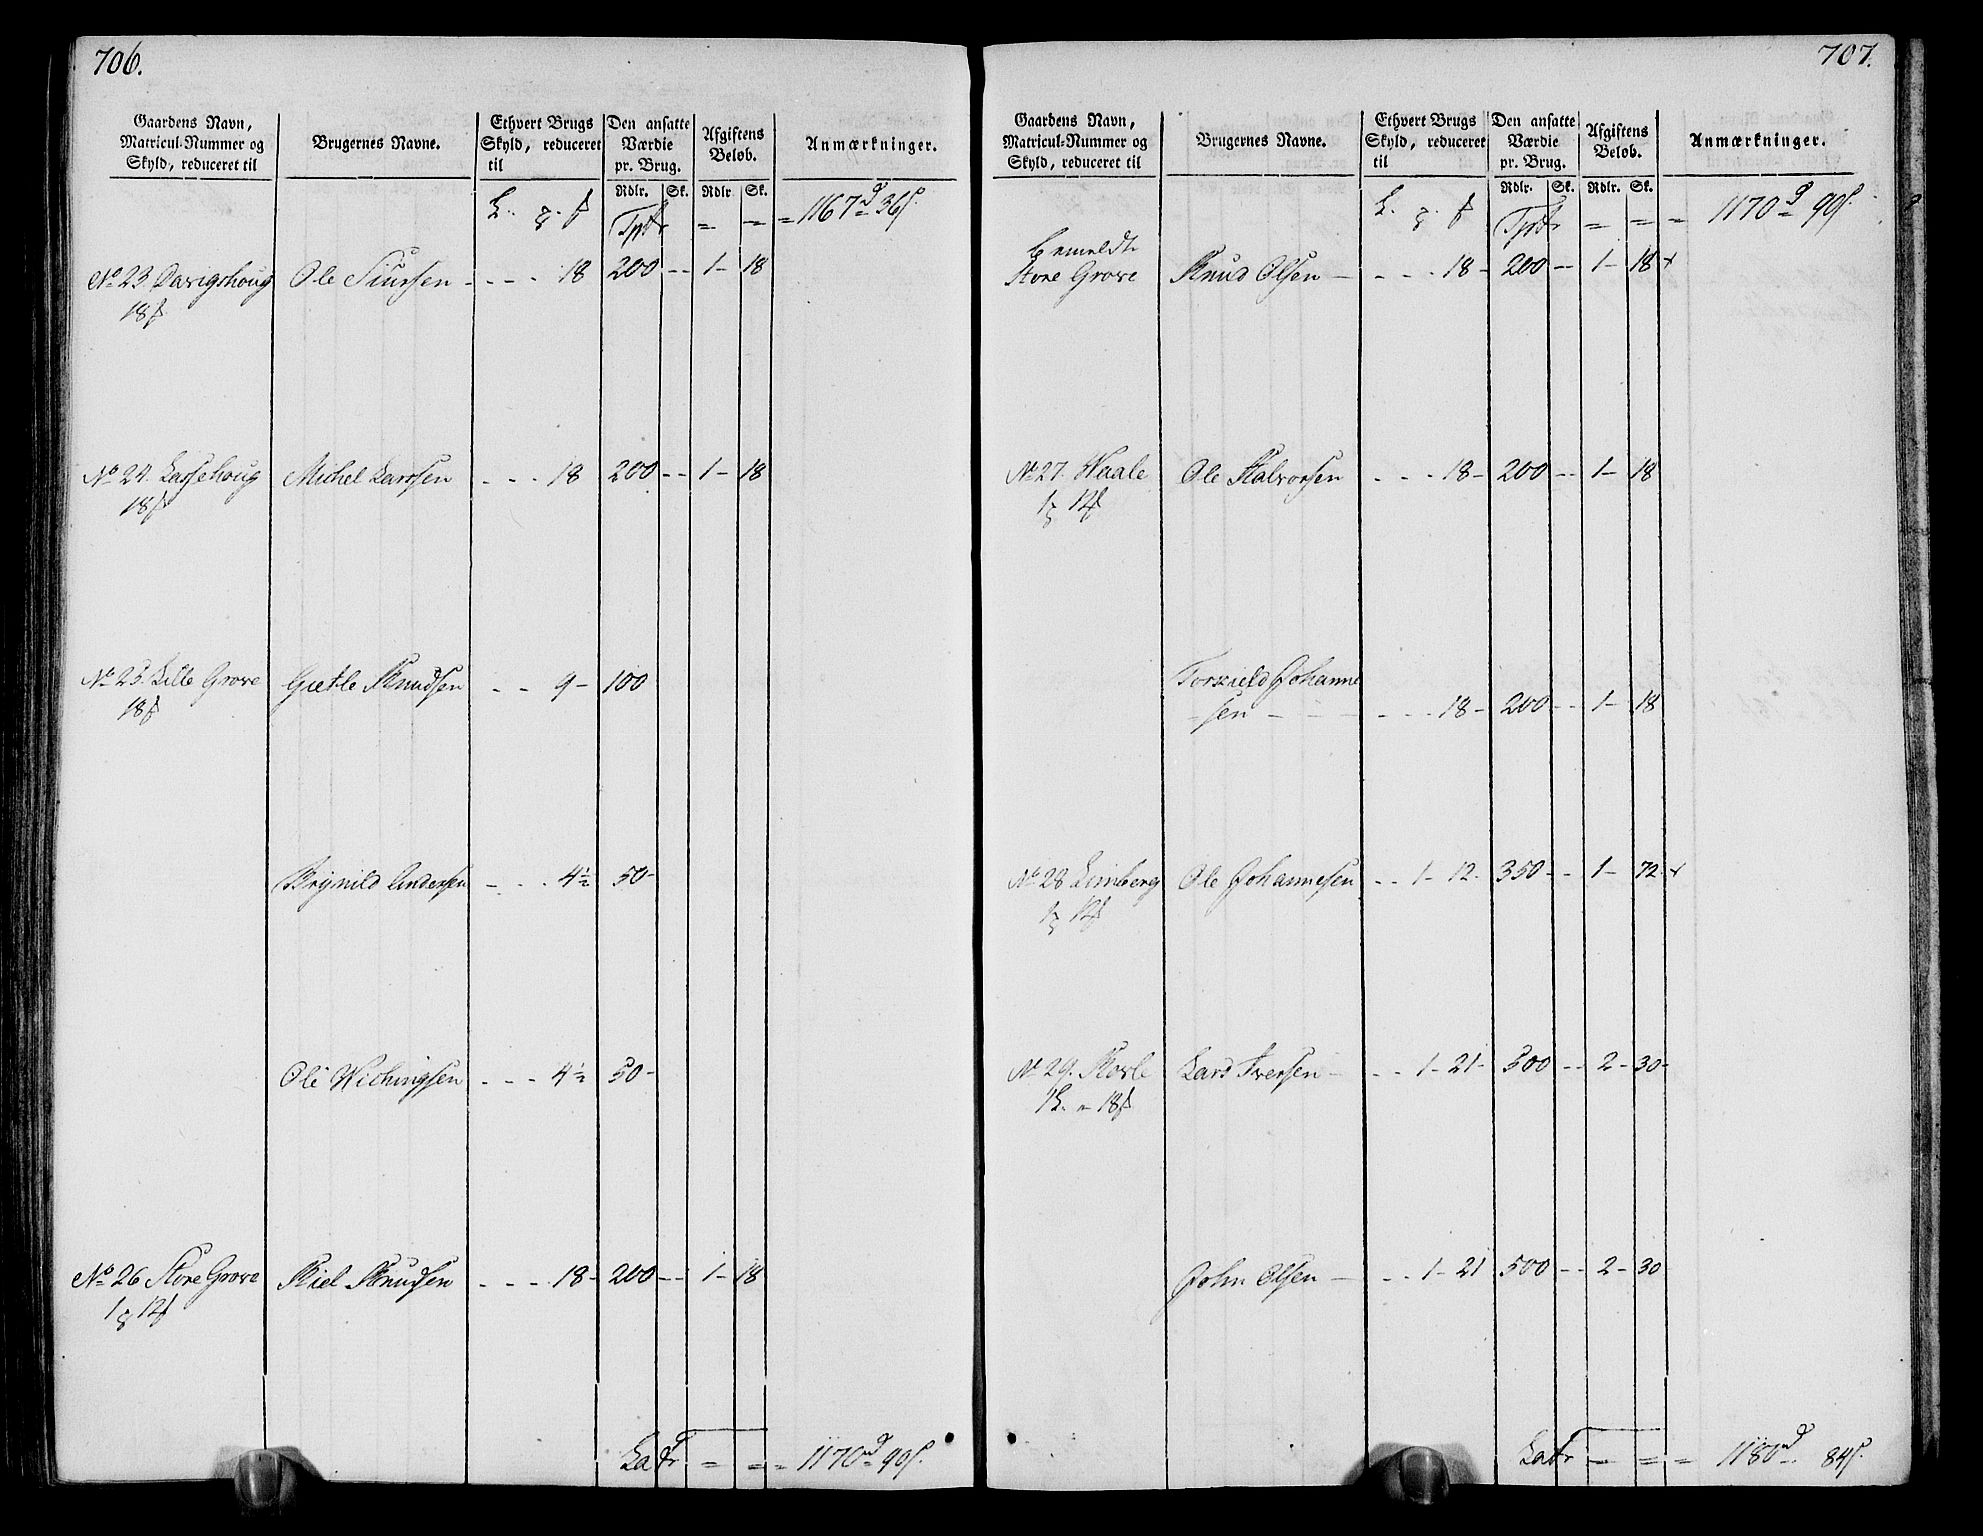 706.
Gaardens Navn, Matricul-Nummer og Skyld, reduceret til
Brugernes Navne.
Ethvert Brugs Skyld, reduceret til
Den ansatte Værdie pr. Brug.
Afgiftens Beløb.
Anmærkninger.
Rdlr. Sk. Rdlr. Sk.
Tptr = = = 1167 d 36 s.
No 23 Davigshoug Ole Siursen - - - - 18 200 - - 1 - 18
18 f
No 24. Lassehoug Michel Larssen - - - 18 200 - - 1 - 18
18 f
No 25. Lille Grove Gietle Knudsen - - 9 - 100
18 f
Brynild Andersen - - - 4½ 50 -
Ole Wichingsen - - - 4½ 50 -
No 26 Store Grove Kiel Knudsen - - - - 18 - 200 - - 1 - 18
1 12 f
Latr = = = 1170 d 90 s.
707.
Gaardens Navn, Matricul-Nummer og Skyld, reduceret til
Brugernes Navne.
Ethvert Brugs Skyld, reduceret til
Den ansatte Værdie pr. Brug.
Afgiftens Beløb.
Anmærkninger.
Rdlr. Sk. Rdlr. Sk.
Tptr = = = 1170 d 90 s.
bemeldte
Store Grove Knud Olsen - - - - 18 - 200 - - 1 - 18 x
No 27. Waale Ole Halvorsen - - - 18 - 200 - - 1 - 18
1 12 f
Torkield Johanne
- sen - - - - - - 18 - 200 - - 1 - 18
No 28 Limberg Ole Johannesen - - 1 - 12 - 350 - - 1 - 72 - x
1 12 f
No 29. Skorle Lars Iversen - - - 1 - 21 - 500 - - 2 - 30 -
1 L. = 18 f
John Olsen - - - 1 - 21 500 - - 2 - 30
Latr = = = 1180 d 84 s.